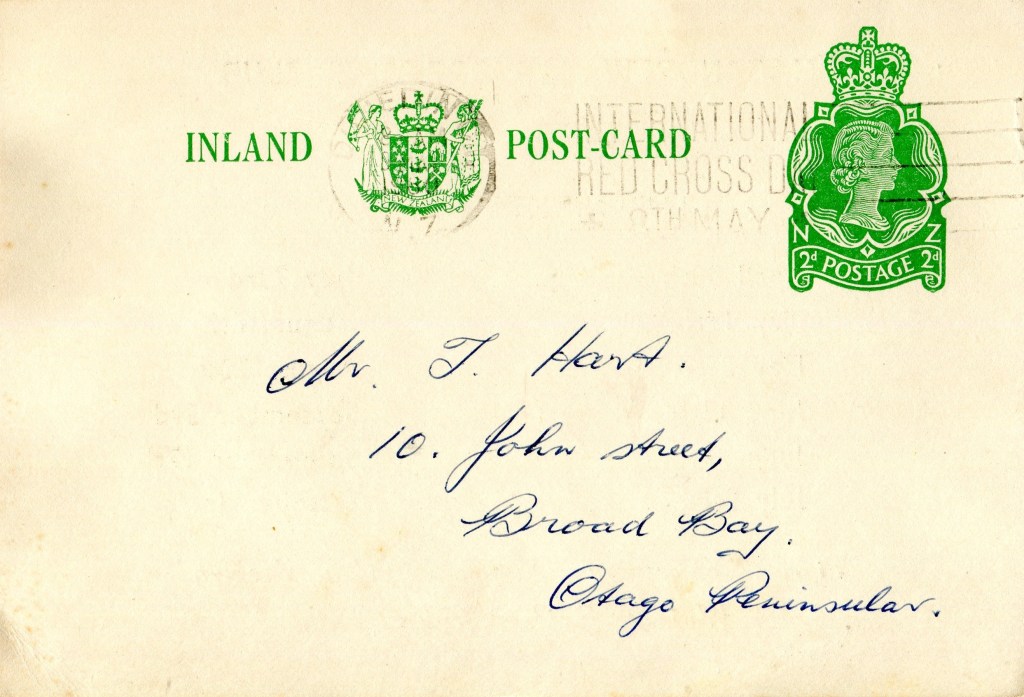 INLAND POST-CARD
NEW ZEALAND
N.Z.
INTERNATIONAL
RED CROSS
8TH MAY
N Z
2d POSTAGE 2d
Mr. T. Hart.
10. John street,
Broad Bay.
Otago Peninsular.